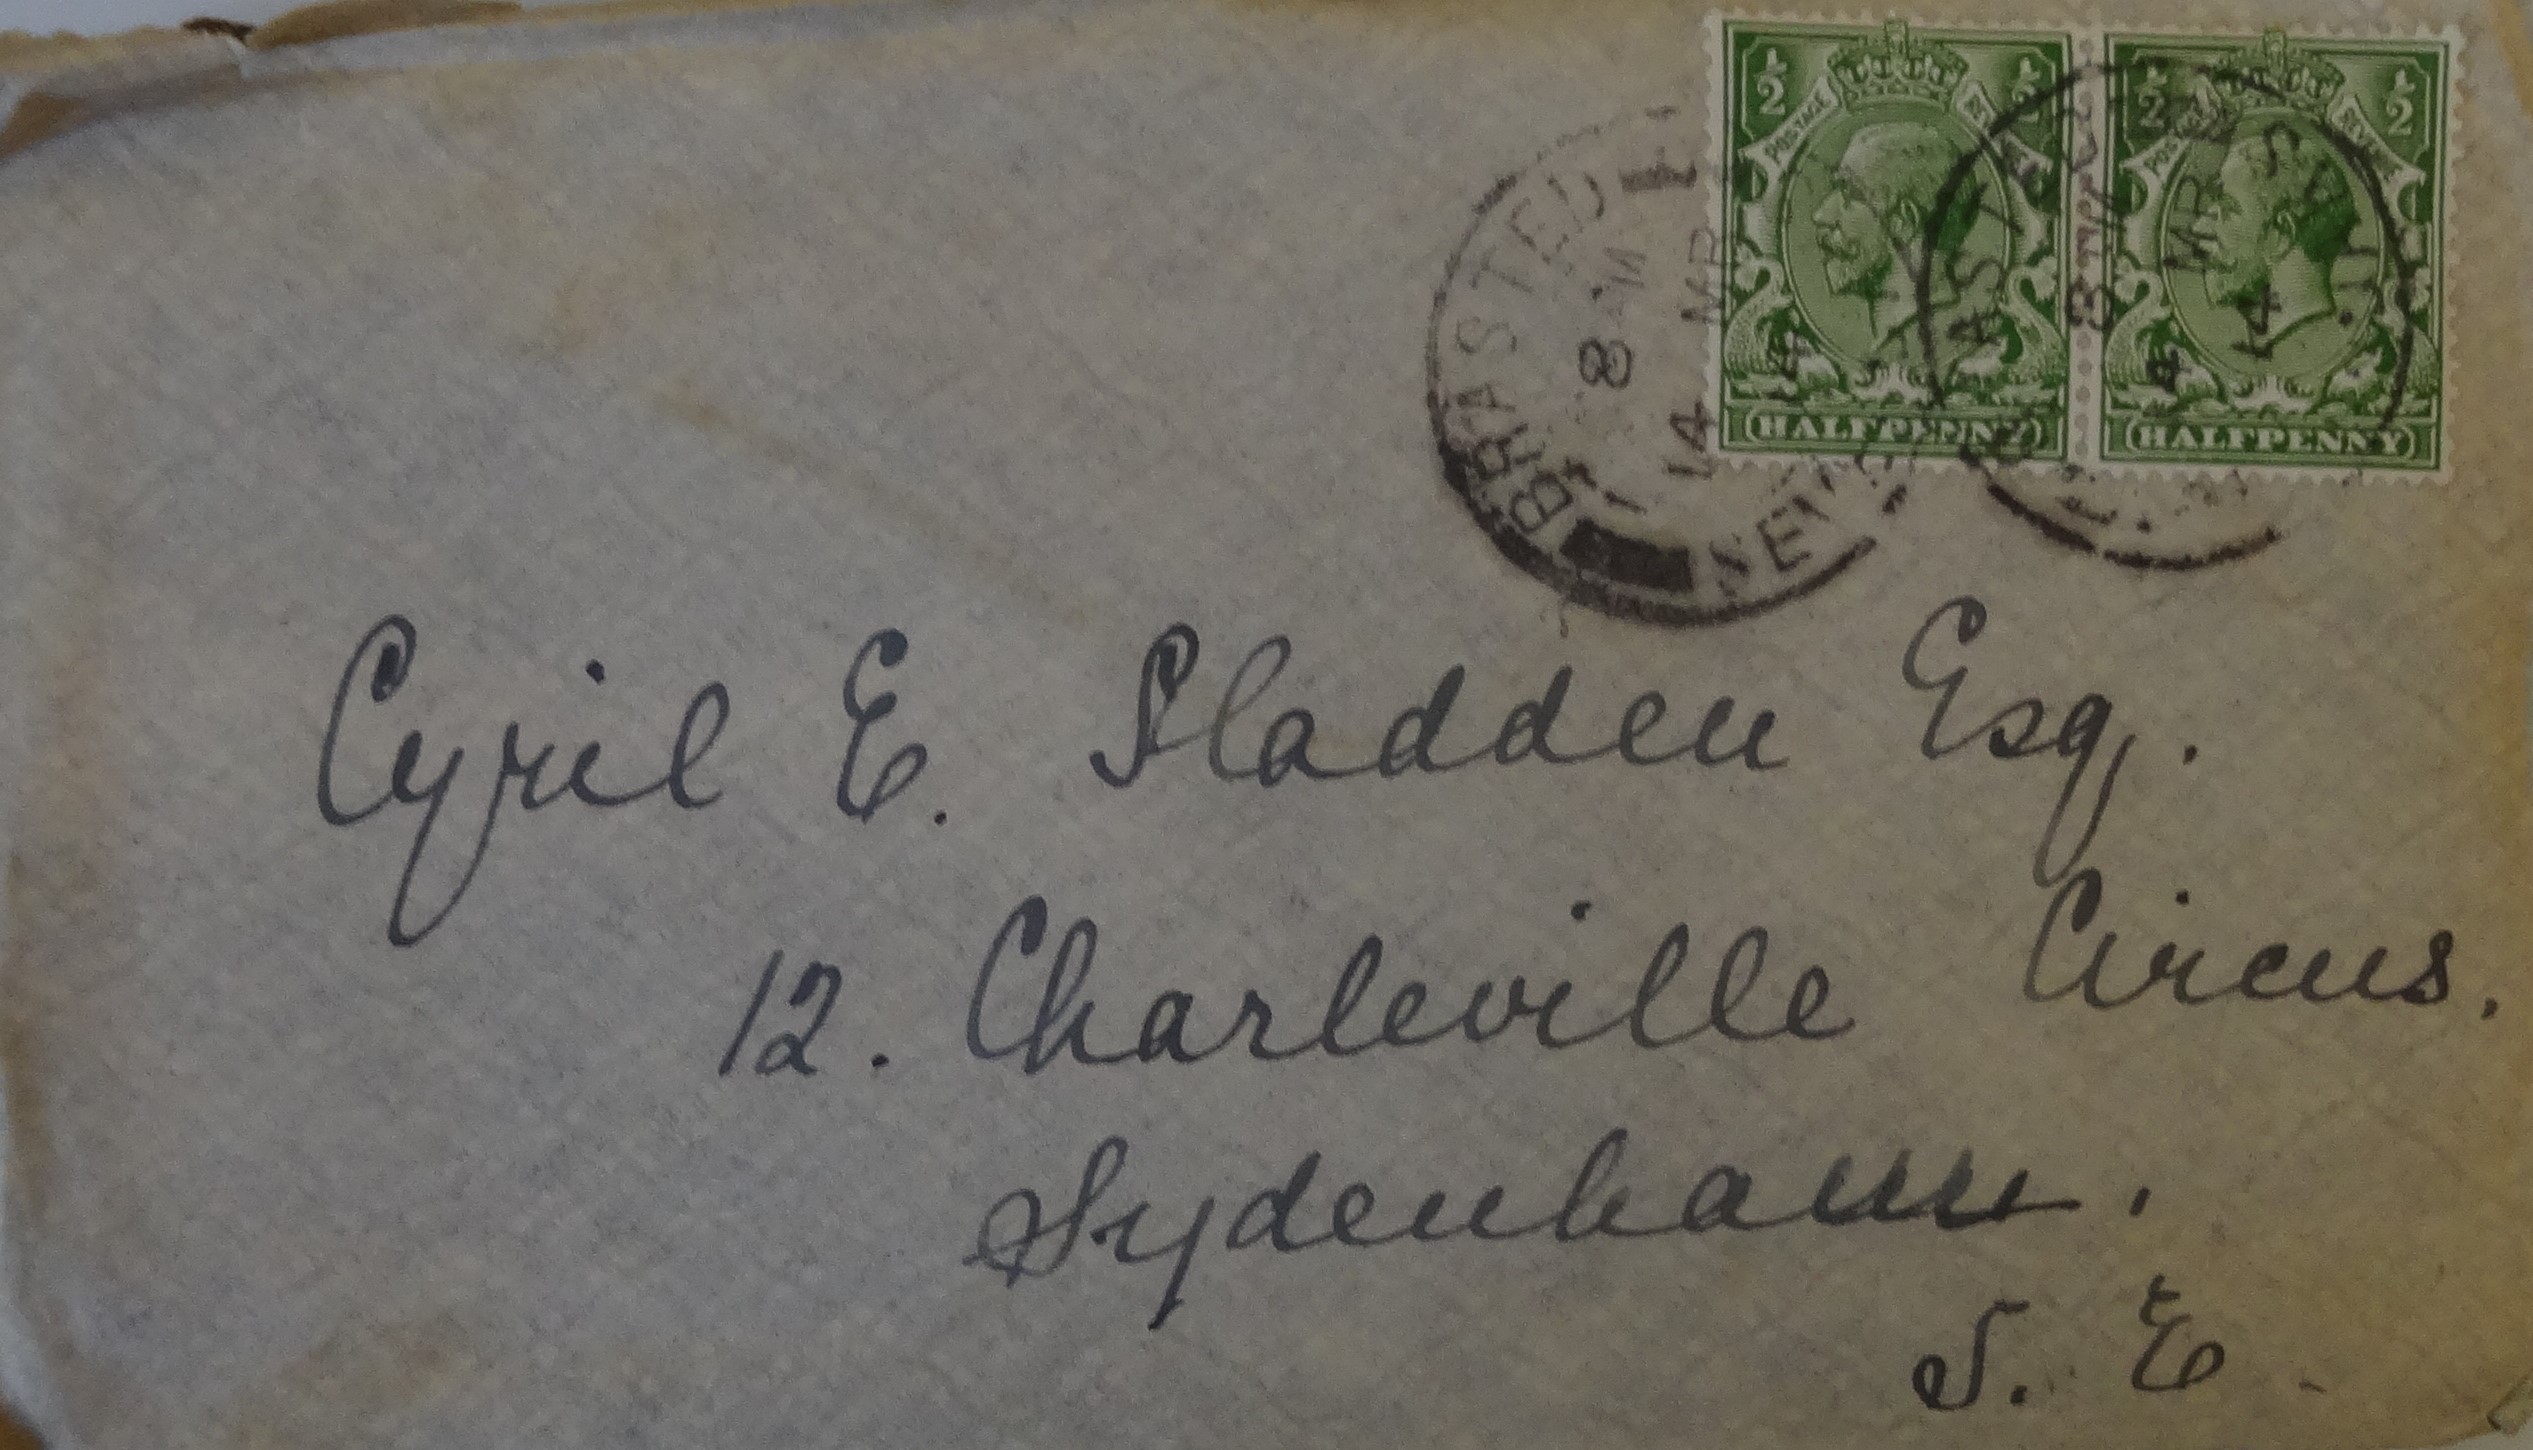 ½ ½ ½ ½
POSTAGE POSTAGE REVENUE
BRASTED
8 PM
14 MR
14
HALFPENNY HALFPENNY
14 MR
14
Cyril E. Sladden Esq.
12. Charleville Circus.
Sydenham.
S. E.